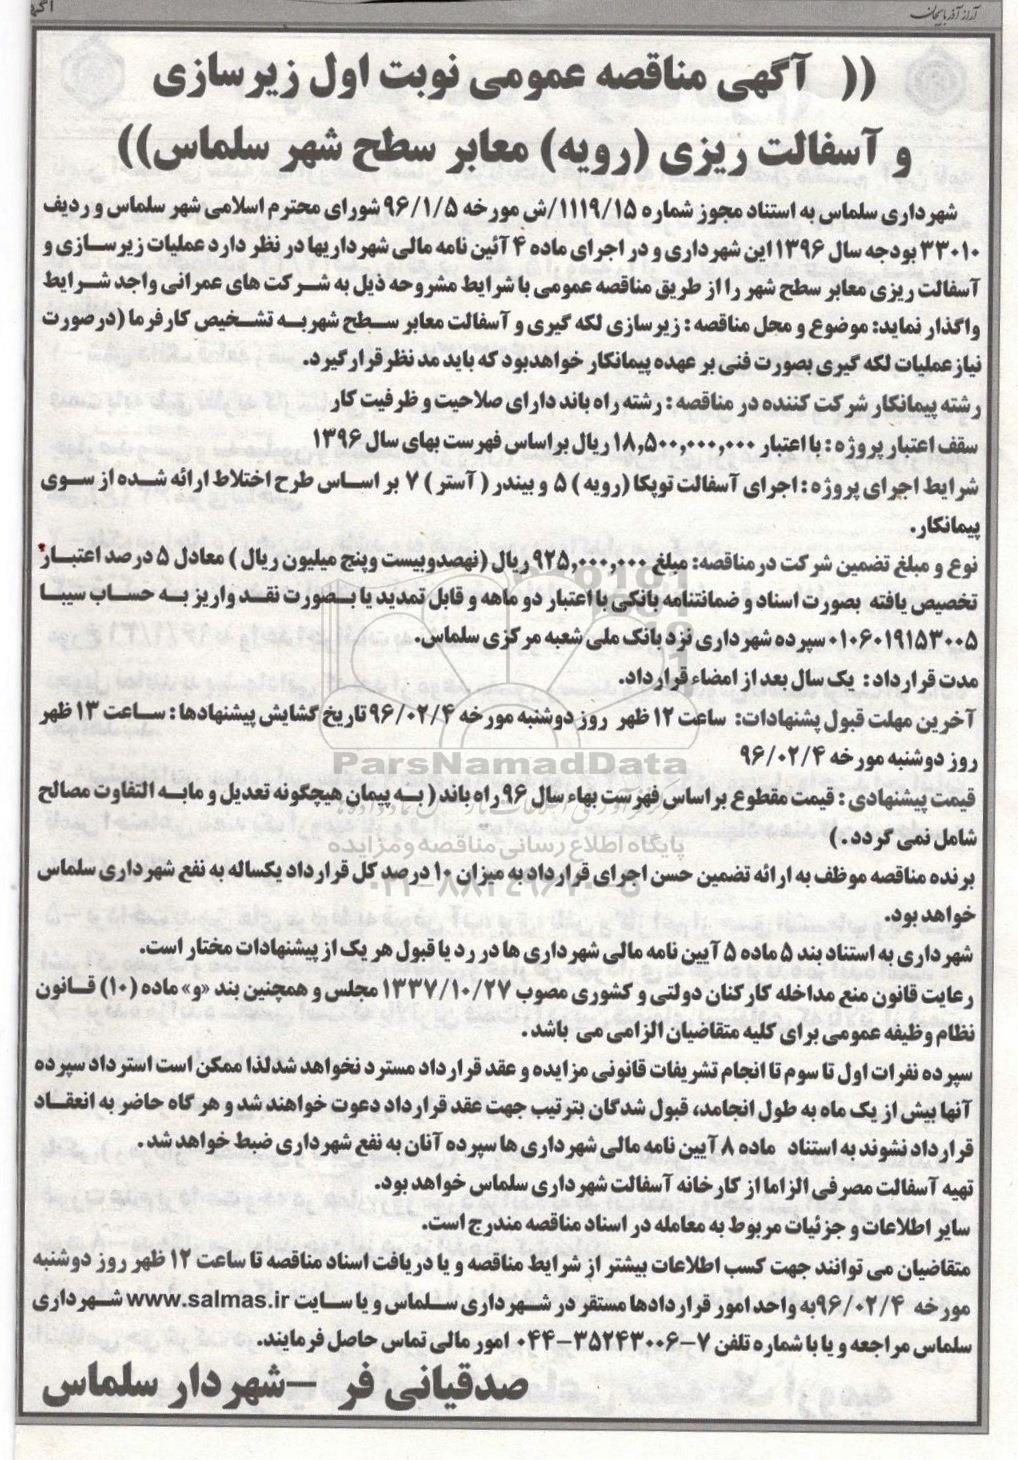 آراز آذربایجان
(( آگهی مناقصه عمومی نوبت اول زیرسازی
و آسفالت ریزی (رویه) معابر سطح شهر سلماس))
شهرداری سلماس به استناد مجوز شماره ۱۱۱۹/۱۵/ش مورخه ۹۶/۱/۵ شورای محترم اسلامی شهر سلماس و ردیف
۳۳۰۱۰ بودجه سال ۱۳۹۶ این شهرداری و در اجرای ماده ۴ آئین نامه مالی شهرداریها در نظر دارد عملیات زیرسازی و
آسفالت ریزی معابر سطح شهر را از طریق مناقصه عمومی با شرایط مشروحه ذیل به شرکت های عمرانی واجد شرایط
واگذار نماید: موضوع و محل مناقصه : زیرسازی لکه گیری و آسفالت معابر سطح شهر به تشخیص کارفرما (درصورت
نیاز عملیات لکه گیری بصورت فنی بر عهده پیمانکار خواهدبود که باید مد نظر قرار گیرد.
رشته پیمانکار شرکت کننده در مناقصه : رشته راه باند دارای صلاحیت و ظرفیت کار
سقف اعتبار پروژه : با اعتبار ۱۸,۵۰۰,۰۰۰,۰۰۰ ریال براساس فهرست بهای سال ۱۳۹۶
شرایط اجرای پروژه : اجرای آسفالت توپکا (رویه) ۵ و بیندر (آستر) ۷ بر اساس طرح اختلاط ارائه شده از سوی
پیمانکار.
نوع و مبلغ تضمین شرکت در مناقصه: مبلغ ۹۲۵,۰۰۰,۰۰۰ ریال (نهصدوبیست وپنج میلیون ریال) معادل ۵ درصد اعتبار
تخصیص یافته بصورت اسناد و ضمانتنامه بانکی با اعتبار دو ماهه و قابل تمدید یا بصورت نقد واریز به حساب سیبا
۰۱۰۶۰۱۹۱۵۳۰۰۵ سپرده شهرداری نزد بانک ملی شعبه مرکزی سلماس.
مدت قرارداد : یک سال بعد از امضاء قرارداد.
آخرین مهلت قبول پشنهادات: ساعت ۱۲ ظهر روز دوشنبه مورخه ۹۶/۰۲/۴ تاریخ گشایش پیشنهادها : ساعت ۱۳ ظهر
روز دوشنبه مورخه ۹۶/۰۲/۴
ParsNamadData
قیمت پیشنهادی : قیمت مقطوع بر اساس فهرست بهاء سال ۹۶ راه باند ( به پیمان هیچگونه تعدیل و مابه التفاوت مصالح
شامل نمی گردد .)
پایگاه اطلاع رسانی مناقصه و مزایده
برنده مناقصه موظف به ارائه تضمین حسن اجرای قرارداد به میزان ۱۰ درصد کل قرارداد یکساله به نفع شهرداری سلماس
خواهد بود.
شهرداری به استناد بند ۵ ماده ۵ آیین نامه مالی شهرداری ها در رد یا قبول هر یک از پیشنهادات مختار است.
رعایت قانون منع مداخله کارکنان دولتی و کشوری مصوب ۱۳۳۷/۱۰/۲۷ مجلس و همچنین بند «و» ماده (۱۰) قانون
نظام وظیفه عمومی برای کلیه متقاضیان الزامی می باشد .
سپرده نفرات اول تا سوم تا انجام تشریفات قانونی مزایده و عقد قرارداد مسترد نخواهد شد لذا ممکن است استرداد سپرده
آنها بیش از یک ماه به طول انجامد، قبول شدگان بترتیب جهت عقد قرارداد دعوت خواهند شد و هر گاه حاضر به انعقاد
قرارداد نشوند به استناد ماده ۸ آیین نامه مالی شهرداری ها سپرده آنان به نفع شهرداری ضبط خواهد شد .
تهیه آسفالت مصرفی الزاما از کارخانه آسفالت شهرداری سلماس خواهد بود.
سایر اطلاعات و جزئیات مربوط به معامله در اسناد مناقصه مندرج است.
متقاضیان می توانند جهت کسب اطلاعات بیشتر از شرایط مناقصه و یا دریافت اسناد مناقصه تا ساعت ۱۲ ظهر روز دوشنبه
مورخه ۹۶/۰۲/۴ به واحد امور قراردادها مستقر در شهرداری سلماس و یا سایت www.salmas.ir شهرداری
سلماس مراجعه و یا با شماره تلفن ۷-۳۵۲۴۳۰۰۶-۰۴۴ امور مالی تماس حاصل فرمایند.
صدقیانی فر – شهردار سلماس